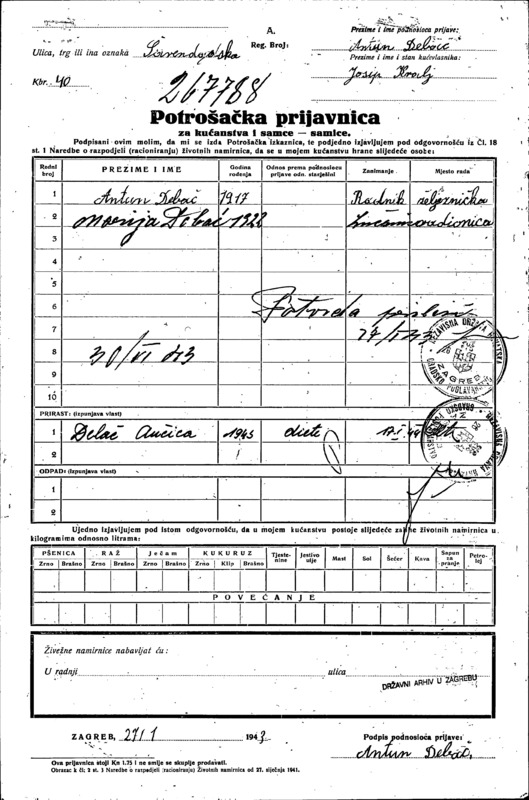 A.
Reg. Broj:
Prezime i ime podnosioca prijave:
Antun Delač
Ulica, trg ili ina oznaka
Prezime i ime i stan kućevlasnika:
Josip Kralj
Kbr. 40
267788
Potrošačka prijavnica
za kućanstva i samce — samice.
Podpisani ovim molim, da mi se izda Potrošačka izkaznica, te podjedno izjavljujem pod odgovornošću iz Čl. 18
st. 1 Naredbe o razpodjeli (racioniranju) životnih namirnica, da se u mojem kućanstvu hrane slijedeće osobe:
Redni broj PREZIME I IME Godina rodjenja Odnos prema podnosiocu prijave odn. starješini Zanimanje Mjesto rada
1 Antun Delač 1917 Radnik željeznička
2 Marija Delač 1922 radionica
3
4
5
6 Potvrda
7
8 30/VI 43
9
10
NEZAVISNA DRŽAVA HRVATSKA
GRADSKO POGLAVARSTVO
ZAGREB
PRIRAST: (Izpunjava vlast)
1 Delač Ančica 1943 diete
2
ODPAD: (Izpunjava vlast)
1
2
Ujedno izjavljujem pod istom odgovornošću, da u mojem kućanstvu postoje slijedeće zalihe životnih namirnica u
kilogramima odnosno litrama:
PŠENICA RAŽ Ječam KUKURUZ Tjestenine Jestivo ulje Mast Sol Šećer Kava Sapun za pranje Petrolej
Zrno Brašno Zrno Brašno Zrno Brašno Zrno Klip Brašno
POVEĆANJE
Živežne namirnice nabavljat ću:
U radnji ulica
DRŽAVNI ARHIV U ZAGREBU
ZAGREB, 27/1 1943
Podpis podnosioca prijave:
Antun Delač
Ova prijavnica stoji Kn 1.75 i ne smije se skuplje prodavati.
Obrazac k čl. 2 st. 3 Naredbe o razpodjeli (racioniranju) životnih namirnica od 27. siječnja 1941.